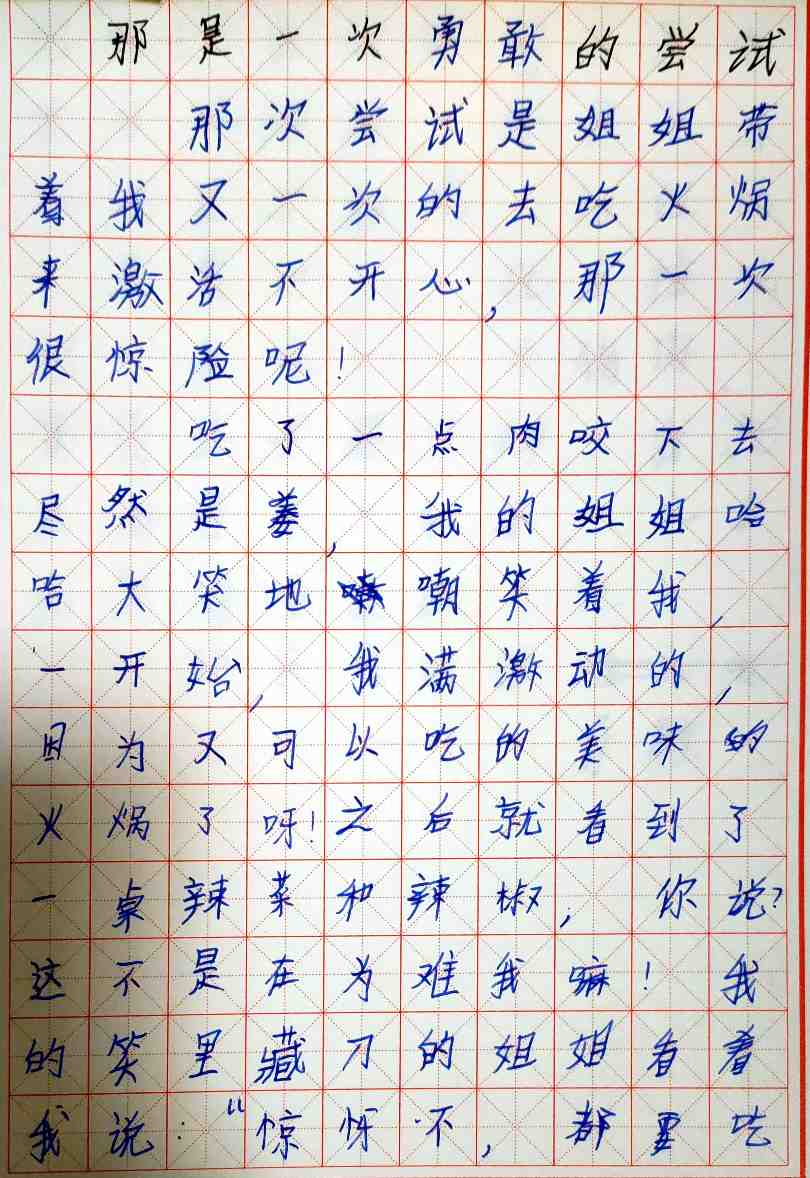 那是一次勇敢的尝试
那次尝试是姐姐带
着我又一次的去吃火焗
来激活不开心,那一次
很惊险呢!
吃了一点肉咬下去
尽然是萎,我的姐姐哈
哈大笑地嘲笑着我,
一开始,我满激动的,
因为又可以吃的美味的
火焗了呀!之后就看到了
一桌辣菜和辣椒,你说?
这不是在为难我嘛!我
的笑里藏刀的姐姐看着
我说:“惊怀不,都要吃